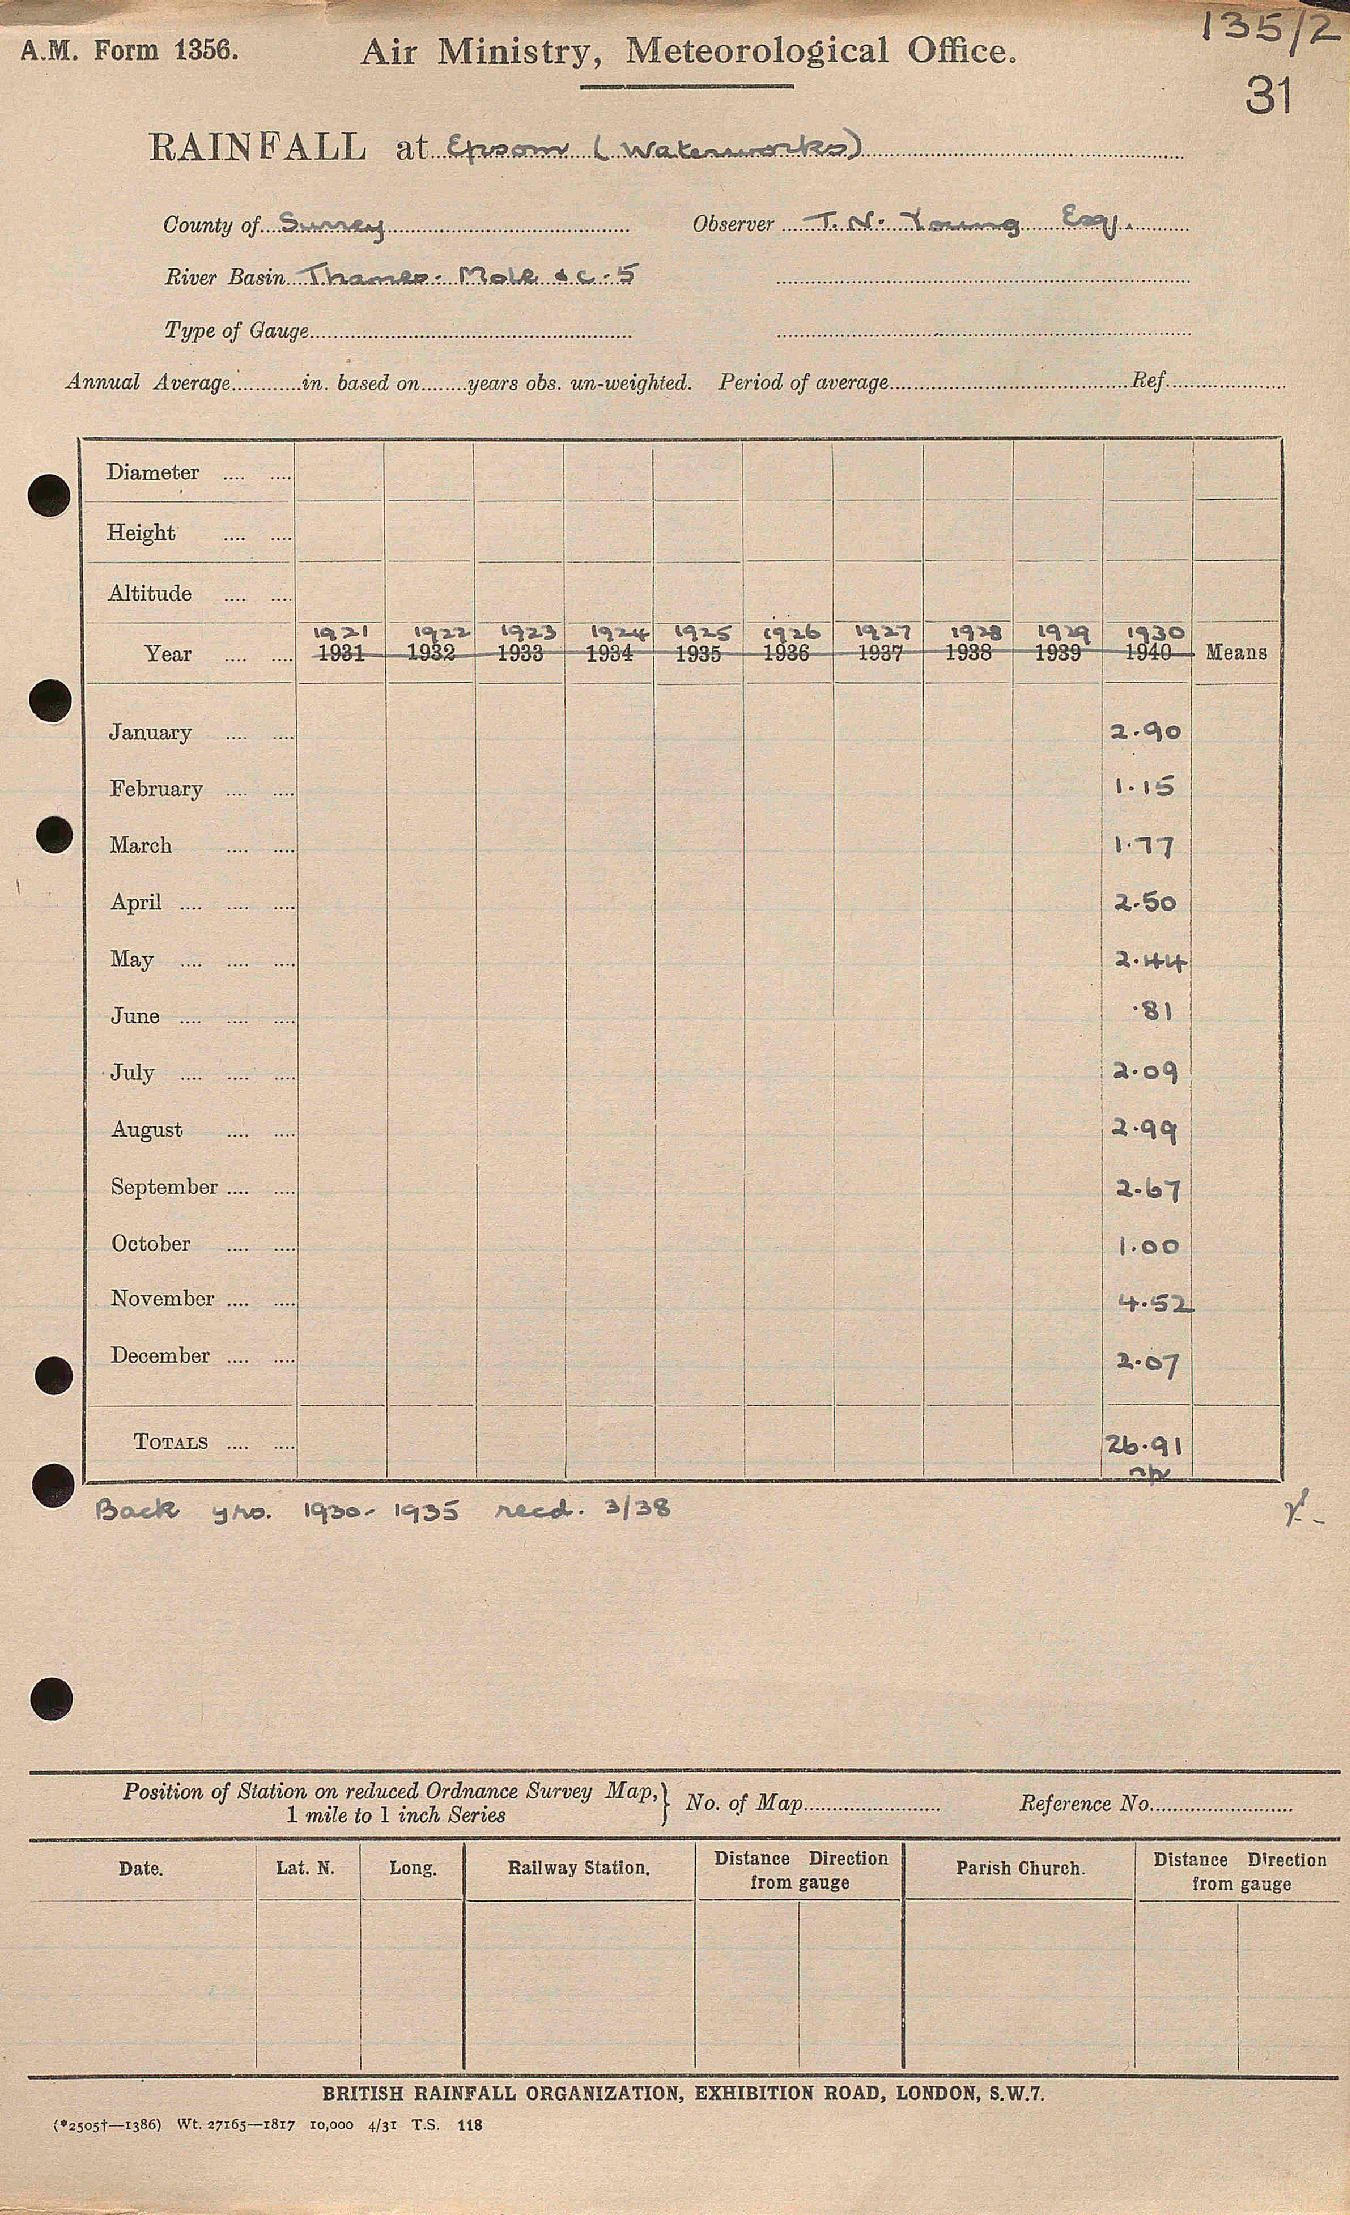 135/2
A.M. Form 1356. Air Ministry, Meteorological Office.
31
RAINFALL at Epsom (Waterworks)
County of Surrey Observer T. N. Young Esq.
River Basin Thames. Mole &c. 5
Type of Gauge
Annual Average in. based on years obs. un-weighted. Period of average Ref.
Diameter
Height
Altitude
1921 1922 1923 1924 1925 1926 1927 1928 1929 1930
Year 1931 1932 1933 1934 1935 1936 1937 1938 1939 1940 Means
January 2.90
February 1.15
March 1.77
April 2.50
May 2.44
June .81
July 2.09
August 2.99
September 2.67
October 1.00
November 4.52
December 2.07
TOTALS 26.91
Back yrs. 1930-1935 recd. 3/38
Position of Station on reduced Ordnance Survey Map, } No. of Map Reference No.
1 mile to 1 inch Series
Date. Lat. N. Long. Railway Station. Distance Direction from gauge Parish Church. Distance Direction from gauge
BRITISH RAINFALL ORGANIZATION, EXHIBITION ROAD, LONDON, S.W.7.
(*2505†—1386) Wt. 27165—1817 10,000 4/31 T.S. 118